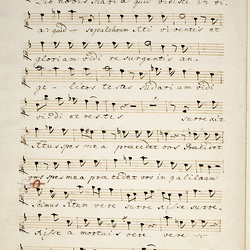 Dic nobis Maria quid vidisti in vi-
a? quid sepulchrum Xti viventis et
gloriam vidi resurgentis an-
ge- licos testes sudarium vidi
vi di et vestes surrexit
Xtus spes mea praecedet vos praecedet
vos spes mea praecedet vos in galilaeam
scimus Xtum vere surre xisse surre-
xisse a mortuis vere vere